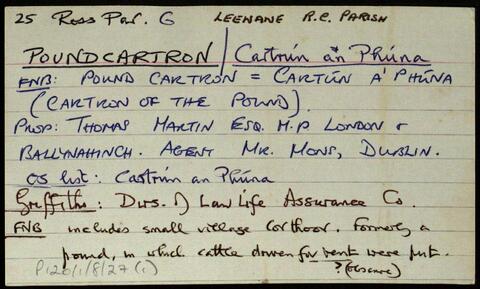 25 Ross Par. G LEENANE R.C. PARISH
POUNDCARTRON / Cartrún an Phúna
FNB: POUND CARTRON = CARTÚN A' PHÚNA
(CARTRON OF THE POUND).
PROP: THOMAS MARTIN ESQ. M.P LONDON &
BALLYNAHINCH. AGENT MR. MONS, DUBLIN.
OS list: Cartrún an Phúna
Griffiths: Dirs. of Law Life Assurance Co.
FNB includes small village Corthoor. Formerly a
pound, in which cattle driven for rent were put.
? (obscure)
P120/1/8/27 (i)